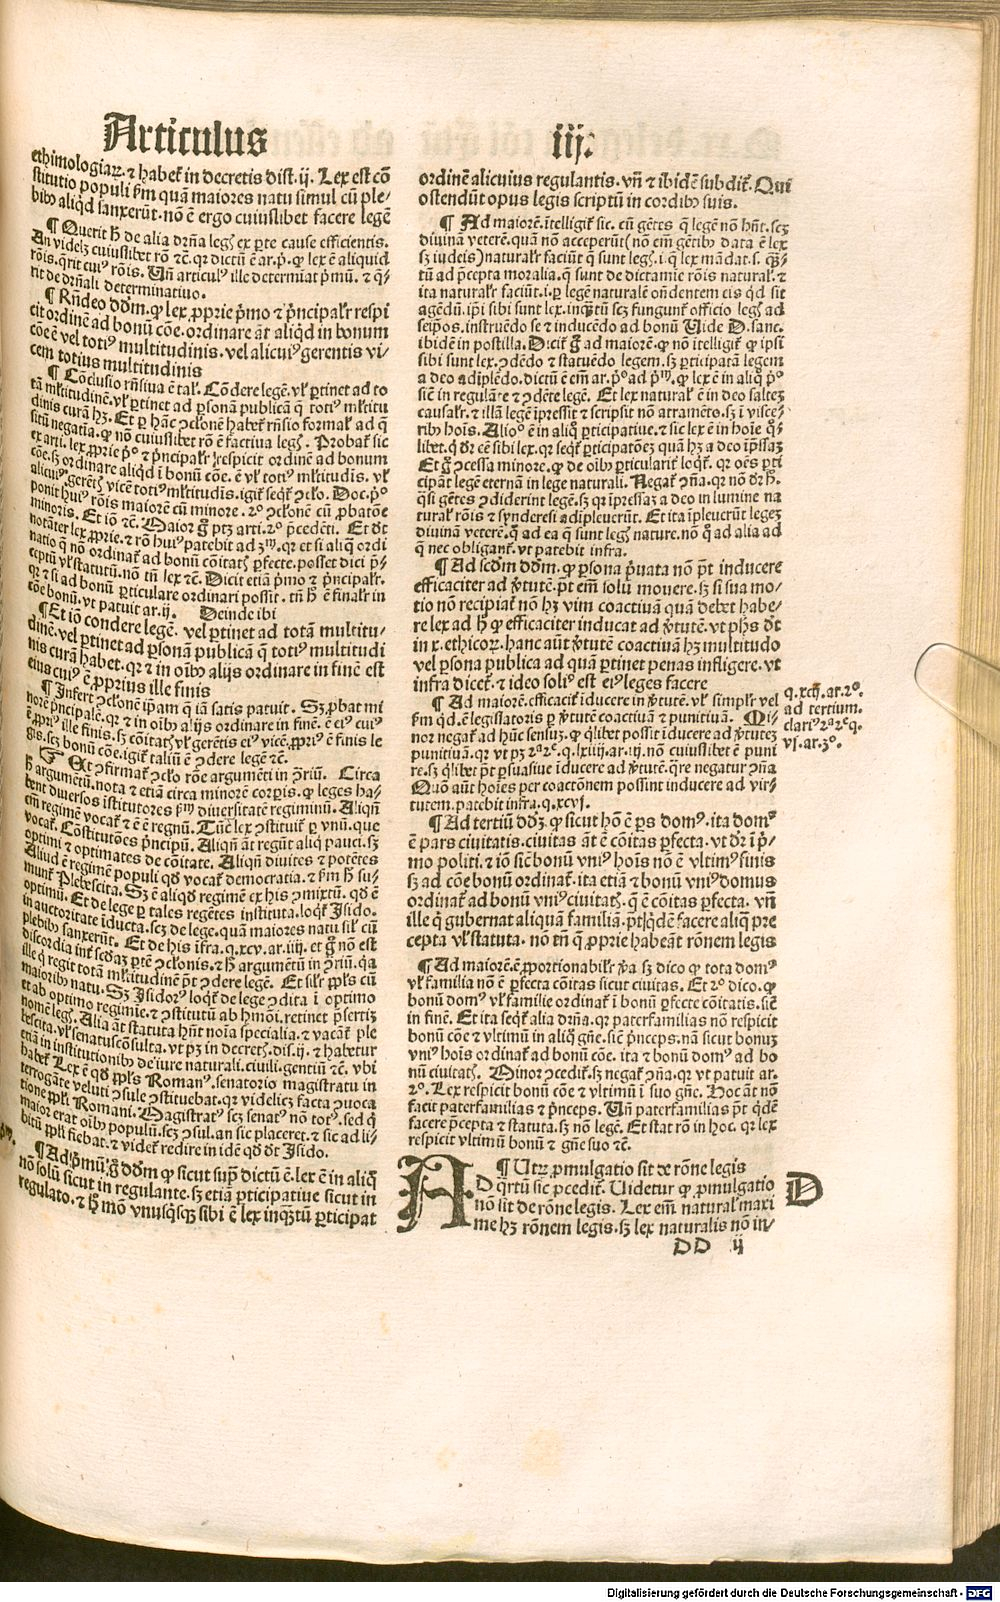 Articulus
iij.
ethimologiaꝝ. ⁊ habet̄ in decretis dist. ij. Lex est cō
stitutio populi ẜm quā maiores natu simul cū ple⸗
bibꝰ aliqd sanxerūt. nō ē ergo cuiuslibet facere legē
¶ Querit̄ ħ de alia dr̄na legꝭ ex ꝑte cause efficientis.
An videlꝫ cuiuslibet rō ⁊c. qꝛ dictū ē ar. p̄. ꝙ lex ē aliquid
rōis. q̄rit̄ cuiꝰ rōis. Uñ articulꝰ ille determiat p̄mū. ⁊ q̄⸗
rit de dr̄nali determinatiuo.
¶ Rñdeo dd̄m. ꝙ lex ꝓprie p̄mo ⁊ p̄ncipalr̄ respi
cit ordinē ad bonū cōe. ordinare āt aliqd in bonum
cōe ē vel totiꝰ multitudinis. vel alicuiꝰ gerentis vi⸗
cem totius multitudinis
¶ Cōclusio rñsiua ē tal̄. Cōdere legē. vl̓ ꝑtinet ad to
tā ml̓titudinē. vl̓ ꝑtinet ad ꝑsonā publicā q̄ totiꝰ ml̓titu
dinis curā hꝫ. Et ꝑ hāc ꝯclonē habet̄ rñsio formal̓ ad q̄
sitū negatīa. ꝙ nō cuiuslibet rō ē factiua legꝭ. Probat̄ sic
ex arti. lex ꝓprie p̄º ⁊ p̄ncipalr̄ respicit ordinē ad bonum
cōe. sꝫ ordinare aliqd ī bonū cōe. ē vl̓ totiꝰ ml̓titudīs. vl̓
alicuiꝰ gerētꝭ vicē totiꝰ ml̓titudīs. igit̄ seqt̄ ꝯclo. Doc. p̄º
ponit huiꝰ rōis maiorē cū minore. 2º ꝯclonē cū ꝓbatōe
minoris. Et iō ⁊c. Maior g̊ ptꝫ arti. 2º p̄cedēti. Et d̄t
notāter lex ꝓprie. ⁊ rō huiꝰ patebit ad 3ᵐ. qꝛ et si aliq̄ ordi
natio q̄ nō ordinat̄ ad bonū cōitatꝭ ꝑfecte. posset dici p̄⸗
ceptū vl̓ statutū. nō tn̄ lex ⁊c. Dicit etiā p̄mo ⁊ p̄ncipalr̄.
qꝛ ⁊ si ad bonū ꝑticulare ordinari possit. tn̄ ħ ē finalr̄ in
cōe bonū. vt patuit ar. ij. Deinde ibi
¶ Et iō condere legē. vel ꝑtinet ad totā multitu⸗
dinē. vel ꝑtinet ad ꝑsonā publicā q̄ totiꝰ multitudi
nis curā habet. qꝛ ⁊ in oībꝰ alijs ordinare in finē est
eius cuiꝰ ē ꝓprius ille finis
¶ Infert ꝯclonē ip̄am q̄ iā satis patuit. Sꝫ ꝓbat mi
norē p̄ncipalē. qꝛ ⁊ in oībꝰ alijs ordinare in finē. ē eiꝰ cuiꝰ
ē ꝓpriꝰ ille finis. sꝫ cōitatꝭ vl̓ gerētis eiꝰ vicē. ꝓpriꝰ ē finis le
gis. scꝫ bonū cōe. igit̄ taliū ē ꝯdere legē ⁊c.
Et ꝯfirmat̄ ꝯclo rōe argumēti in ꝯriū. Circa
ħ argumētū. nota ⁊ etiā circa minorē corꝑis. ꝙ leges ha⸗
bent diuersos īstitutores ẜm diuersitatē regiminū. Aliqn̄
em̄ regimē vocat̄ ⁊ ē ē regnū. Tūc lex ꝯstituit̄ ꝑ vnū. que
vocat̄. Cōstitutōes p̄ncipū. Aliqn̄ āt regūt aliq̄ pauci. sꝫ
optimi ⁊ optimates de cōitate. Aliqn̄ diuites ⁊ potētes
Aliud ē regimē populi qd̓ vocat̄ democratia. ⁊ ẜm ħ su⸗
munt̄ Plebescita. Sꝫ ē aliqd̓ regimē ex his ꝯmixtū. qd̓ ē
optimū. Et de lege ꝑ tales regētes instituta. loqt̄ Isido.
in auctoritate īducta. scꝫ de lege. quam maiores natu sil̓ cū
plebibꝰ sanxerūt. Et de his īfra. q. xcv. ar. iiij. et g̊ nō est
discordia int̄ scd̓aꝫ ꝑtē ꝯclonis. ⁊ ħ argumētū in ꝯriū. q̄a
ille q̄ regit totā ml̓titudinē p̄t ꝯdere legē. Et sil̓r ꝓpl̓s cū
maioribꝰ natu. Sꝫ Isidorꝰ loqt̄ de lege ꝯdita ī optimo
et ab optimo regimie. ⁊ ꝯstitutū ab hmōi. retinet p̄sertiꝫ
nomē legꝭ. Alia āt statuta hn̄t noīa specialia. ⁊ vacāt̄ ple
bescita. vl̓ senatuscōsulta. vt pꝫ in decretꝭ. dis. ij. ⁊ habetur
etiā in institutionibꝰ de iure naturali. ciuili. gentiū ⁊c. vbi
habet̄ Lex ē qd̓ ꝓpl̓s Romanꝰ. senatorio magistratu in
terrogāte veluti ꝯsule ꝯstituebat. qꝛ videlicꝫ facta ꝯuoca
tione ꝓpl̓i Romani. Magistratꝰ scꝫ senatꝰ nō totꝰ. sed q̄
maior erat oībꝰ populū. scꝫ ꝯsul. an sic placeret. ⁊ sic ad li⸗
bitū ꝓpl̓i fiebat. ⁊ videt̄ redire in idē qd̓ d̄t Isido.
¶ Ad p̄mū g̊ dd̄m ꝙ sicut supͣ dictū ē. lex ē in aliq̄
nō solū sicut in regulante. sꝫ etiā ꝑticipatiue sicut in
regulato. ⁊ ħ mō vnusqͥsqꝫ sibi ē lex inqͣtū ꝑticipat
ordinē alicuius regulantis. vñ ⁊ ibidē subdit̄. Qui
ostendūt opus legis scriptū in cordibꝰ suis.
¶ Ad maiorē. ītelligit̄ sic. cū gētes q̄ legē nō hn̄t. scꝫ
diuinā veterē. quā nō acceperūt (nō em̄ gētibꝰ data ē lex
sꝫ iudeis) naturalr̄ faciūt q̄ sunt legꝭ. i. q̄ lex mādat. s. qͣ⸗
tū ad p̄cepta moralia. q̄ sunt de dictamie rōis natural̓. ⁊
ita naturalr̄ faciūt. i. ꝑ legē naturalē oñdentem eis qd̓ sit
agēdū. ip̄i sibi sunt lex. inqͣtū scꝫ fungunt̄ officio legꝭ ad
seip̄os. instruēdo se ⁊ inducēdo ad bonū Uide D. sanc.
ibidē in postilla. Dicit̄ g̊ ad maiorē. ꝙ nō ītelligit̄ ꝙ ip̄i
sibi sunt lex. ꝯdēdo ⁊ statuēdo legem. sꝫ ꝑticipatā legem
a deo adiplēdo. dictū ē em̄ ar. p̄º ad p̄ᵐ. ꝙ lex ē in aliq̄ p̄º
sic̄ in regulāte ⁊ ꝯdēte legē. Et lex natural̓ ē in deo saltez
causalr̄. ⁊ illā legē īpressit ⁊ scripsit nō atramēto. sꝫ ī visce⸗
ribꝰ hoīs. Alioº ē in aliq̄ ꝑticipatiue. ⁊ sic lex ē in hoīe q̄⸗
libet. q̄ d̄r eē sibi lex. qꝛ seqt̄ ꝑticipatōeꝫ quā hꝫ a deo īp̄ssaꝫ
Et g̊ ꝯcessa minore. ꝙ de oībꝰ ꝑticularit̄ loqt̄. qꝛ oēs ꝑti
cipāt legē eternā in lege naturali. Negat̄ ꝯña. qꝛ nō d̄r ħ.
q̄si gētes ꝯdiderint legē. sꝫ qꝛ īpressaꝫ a deo in lumine na
tural̓ rōis ⁊ synderesi adipleuerūt. Et ita īpleuerūt legeꝫ
diuinā veterē. q̄ ad ea q̄ sunt legꝭ nature. nō q̄ ad alia ad
q̄ nec obligant̄. vt patebit infra.
¶ Ad scd̓m dd̄m. ꝙ ꝑsona p̄uata nō p̄t inducere
efficaciter ad v̓tutē. p̄t em̄ solū mouere. sꝫ si sua mo⸗
tio nō recipiat̄ nō hꝫ vim coactiuā quā debet habe⸗
re lex ad ħ ꝙ efficaciter inducat ad v̓tutē. vt ph̓s d̄t
in x. ethicoꝝ. hanc aūt v̓tutē coactiuā hꝫ multitudo
vel ꝑsona publica ad quā ꝑtinet penas infligere. vt
infra dicet̄. ⁊ ideo soliꝰ est eiꝰ leges facere
¶ Ad maiorē. efficacit̄ īducere in v̓tutē. vl̓ simplr̄ vel
ẜm qd̓. ē legislatoris ꝑ v̓tutē coactiuā ⁊ punitiuā. Mi⸗
nor negat̄ ad hūc sensuꝫ. ꝙ q̄libet possit īducere ad v̓tuteꝫ
punitiuā. qꝛ vt pꝫ 2ª2ᵉ. q. lxiiij. ar. iij. nō cuiuslibet ē puni
re. sꝫ q̄libet p̄t ꝑsuasiue īducere ad v̓tutē. q̄re negatur ꝯña
Quō aūt hoīes per coactōnem possint inducere ad vir⸗
tutem. patebit infra. q. xcvj.
¶ Ad tertiū dd̄ꝫ. ꝙ sicut hō ē ꝑs domꝰ. ita domꝰ
ē pars ciuitatis. ciuitas āt ē cōitas ꝑfecta. vt d̄r ī p̄⸗
mo politi. ⁊ iō sic̄ bonū vniꝰ hoīs nō ē vltimꝰ finis
sꝫ ad cōe bonū ordinat̄. ita etiā ⁊ bonū vniꝰ domus
ordinat̄ ad bonū vniꝰ ciuitatꝭ. q̄ ē cōitas ꝑfecta. vñ
ille q̄ gubernat aliquam familiā. p̄t qͥdē facere aliq̄ pre
cepta vl̓ statuta. nō tn̄ q̄ ꝓprie habeāt rōnem legis
¶ Ad maiorē. ē ꝓportionabilr̄ v̓a sꝫ dico ꝙ tota domꝰ
vl̓ familia nō ē ꝑfecta cōitas sicut ciuitas. Et 2º dico. ꝙ
bonū domꝰ vl̓ familie ordinat̄ ī bonū ꝑfecte cōitatis. sic̄
in finē. Et ita seqt̄ alia dr̄na. qꝛ paterfamilias nō respicit
bonū cōe ⁊ vltimū in aliq̄ gñe. sic̄ p̄nceps. nā sicut bonuꝫ
vniꝰ hoīs ordinat̄ ad bonū cōe. ita ⁊ bonū domꝰ ad bo
nū ciuitatꝭ. Minor ꝯcedit̄. sꝫ negat̄ ꝯña. qꝛ vt patuit ar.
2º. Lex respicit bonū cōe ⁊ vltimū ī suo gñe. Hoc āt nō
facit paterfamilias ⁊ p̄nceps. Uñ paterfamilias p̄t qͥdē
facere p̄cepta ⁊ statuta. sꝫ nō legē. Et stat rō in hoc. qꝛ lex
respicit vltimū bonū ⁊ gñe suo ⁊c.
¶ Utꝝ ꝓmulgatio sit de rōne legis
AD q̄rtū sic ꝓcedit̄. Uidetur ꝙ ꝓmulgatio
nō sit de rōne legis. Lex em̄ natural̓ maxi
me hꝫ rōnem legis. sꝫ lex naturalis nō in⸗
DD ij
q. xcij. ar. 2º.
ad tertium.
clariꝰ 2ª2ᵉ q.
vj. ar. 3º.
D
Digitalisierung gefördert durch die Deutsche Forschungsgemeinschaft - DFG